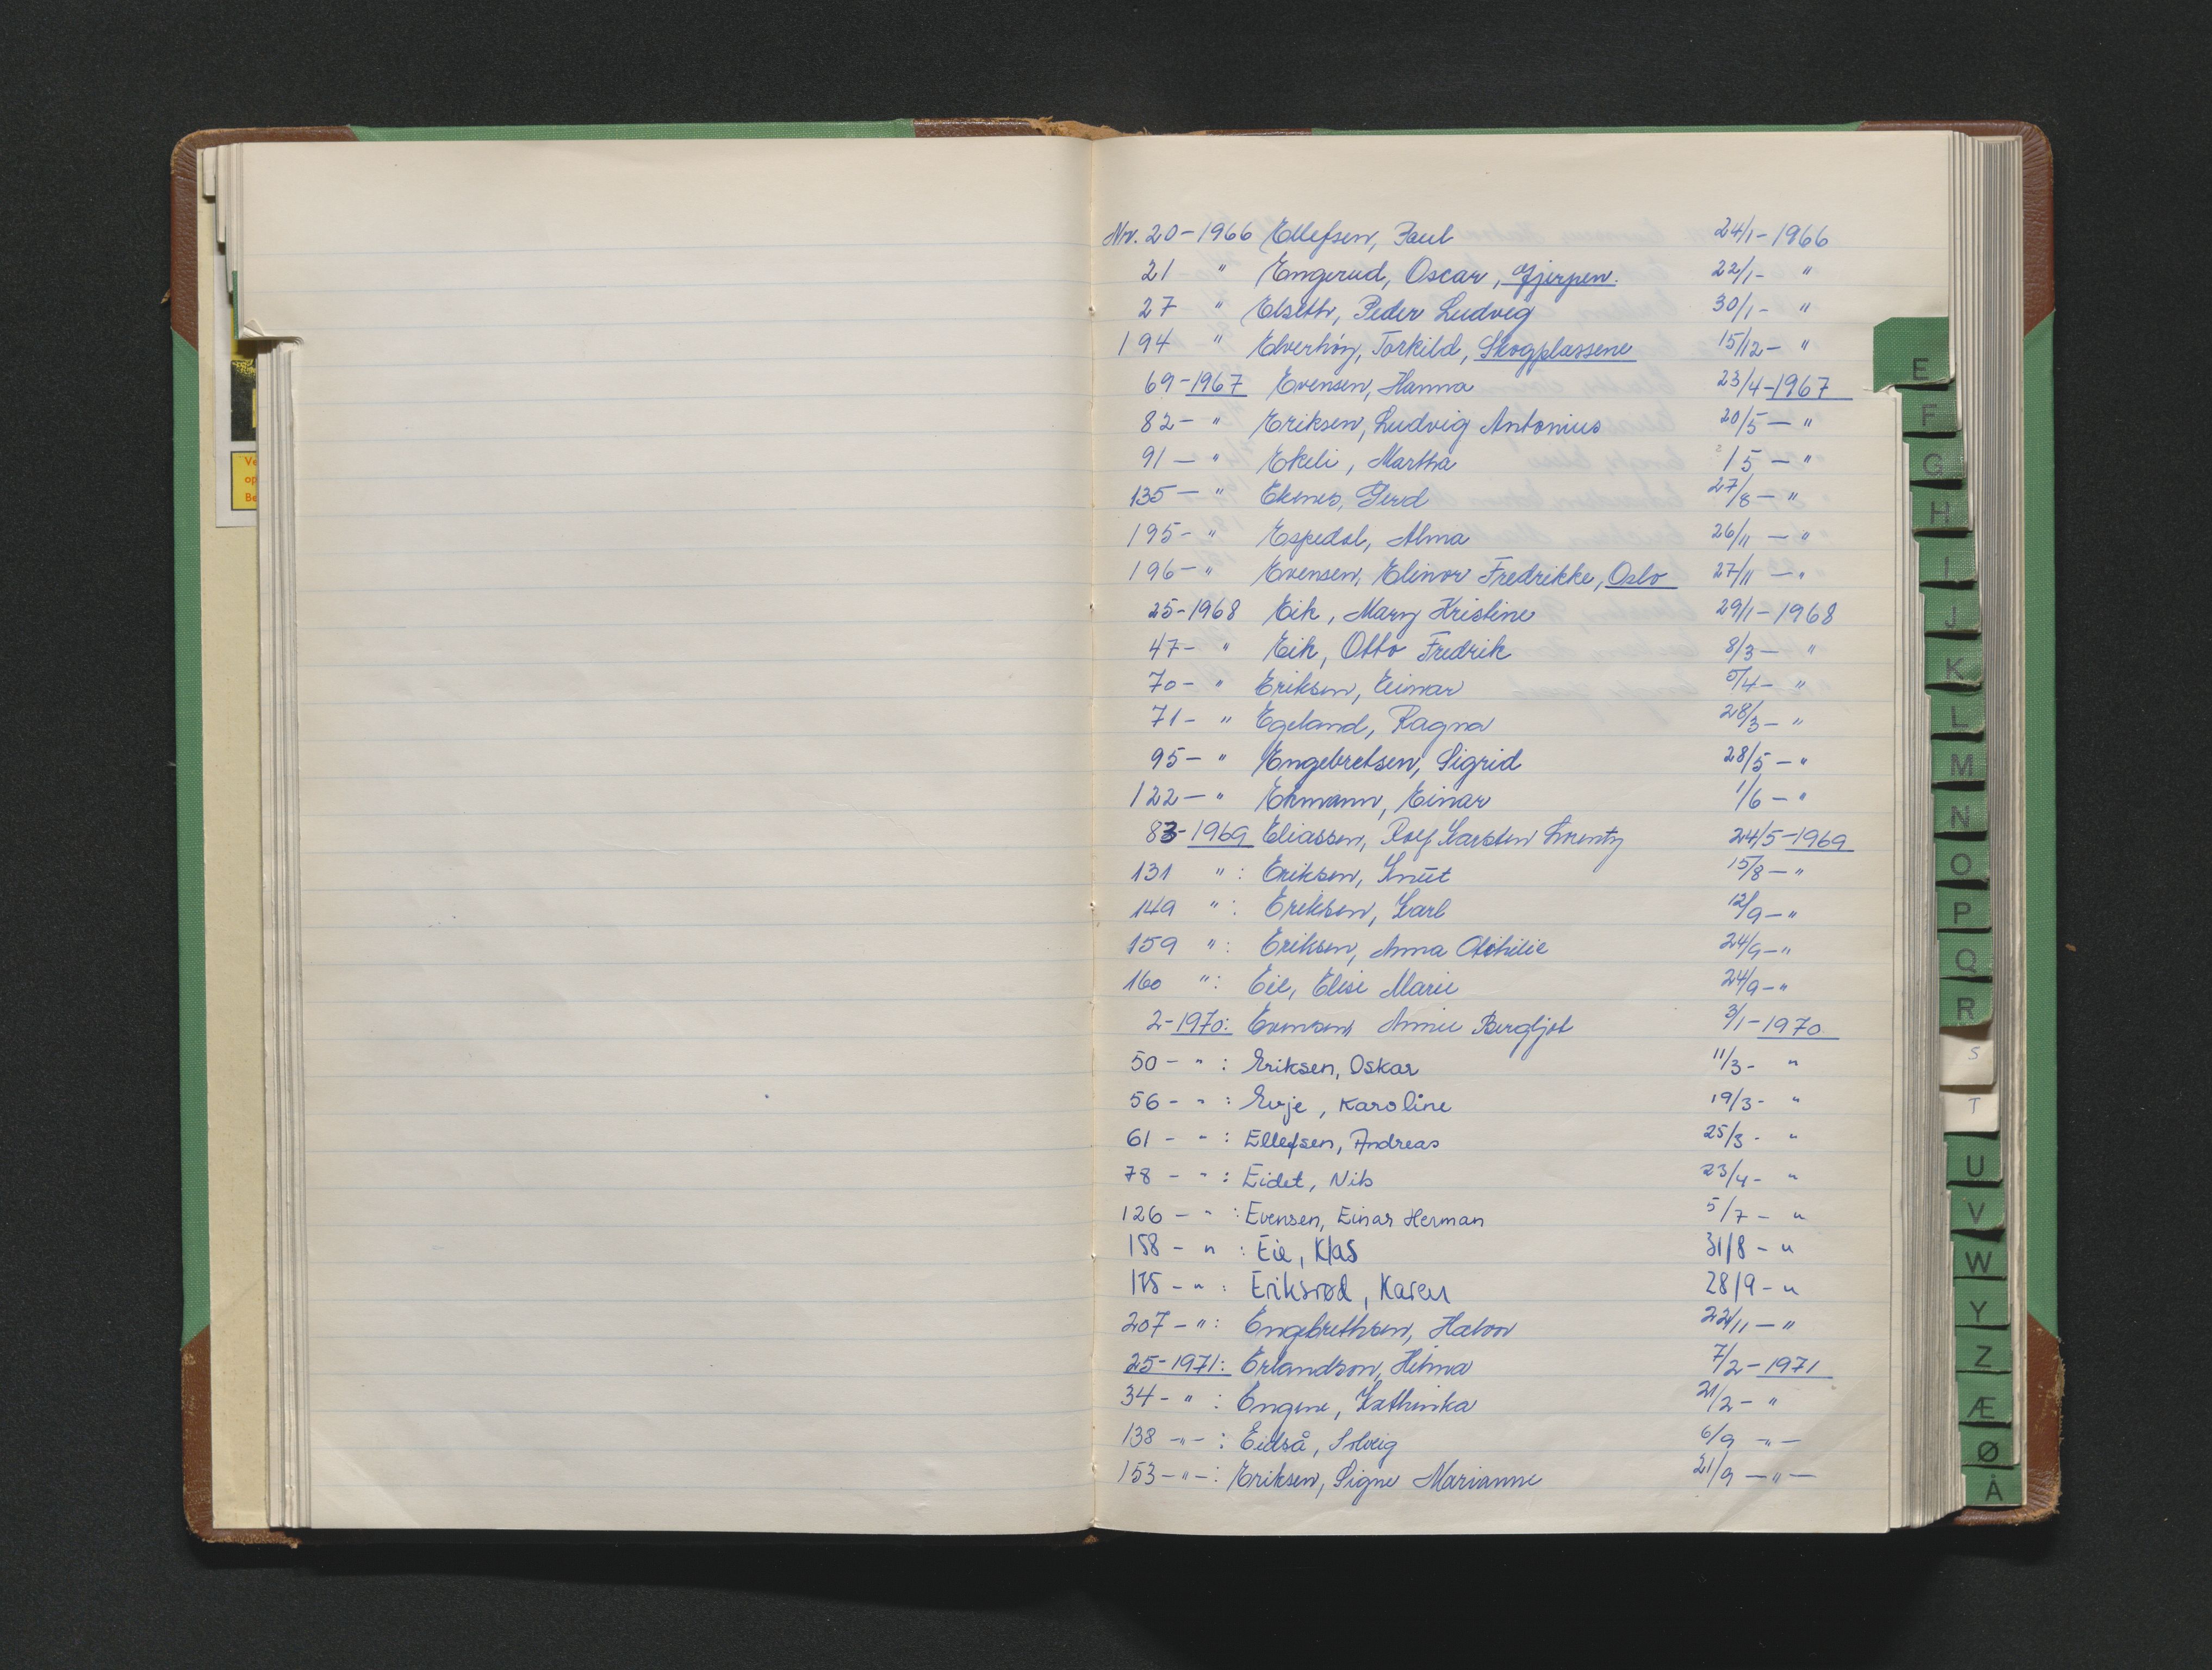 Nr. 20-1966 Ellefsen, Paul 24/1-1966
21 " Engerud, Oscar, Gjerpen. 22/1- "
27 " Elseth, Peder Ludvig 30/1- "
194 " Elverhøy, Torkild, Skogplassene 15/12- "
69-1967 Evensen, Hanna 23/4-1967
82- " Eriksen, Ludvig Antonius 20/5- "
91- " Ekeli, Martha 15- "
135- " Eknes, Gerd 27/8- "
195- " Espedal, Alma 26/11- "
196- " Evensen, Elinor Fredrikke, Oslo 27/11- "
25-1968 Eik, Mary Kristine 29/1-1968
47- " Eik, Otto Fredrik 8/3- "
70- " Eriksen, Einar 5/4- "
71- " Egeland, Ragna 28/3- "
95- " Engebretsen, Sigrid 28/5- "
122- " Ekmann, Einar 1/6- "
83-1969 Eliassen, Rolf Karsten 24/5-1969
131 " : Eriksen, Knut 15/8- "
149 " : Eriksen, Karl 12/9- "
159 " : Eriksen, Anna Othilie 24/9- "
160 " : Eie, Elise Marie 24/9- "
2-1970: Evensen, Annie Bergljot 3/1-1970
50- " : Eriksen, Oskar 11/3- "
56- " : Evje, Karoline 19/3- "
61- " : Ellefsen, Andreas 25/3- "
78- " : Eidet, Nils 23/4- "
126- " : Evensen, Einar Herman 5/7- "
158- " : Eie, Klas 31/8- "
175- " : Eriksrød, Karen 28/9- "
207- " : Engebrethsen, Halvor 22/11- "
25-1971: Erlandson, Hilma 7/2-1971
34- " : Engene, Kathinka 21/2- "
138 -"- : Eidså, Solveig 6/9 -"-
153-"-: Eriksen, Signe Marianne 21/9 -"-
Ve
op
Be
E
F
G
H
I
J
K
L
M
N
O
P
Q
R
S
T
U
V
W
Y
Z
Æ
Ø
Å